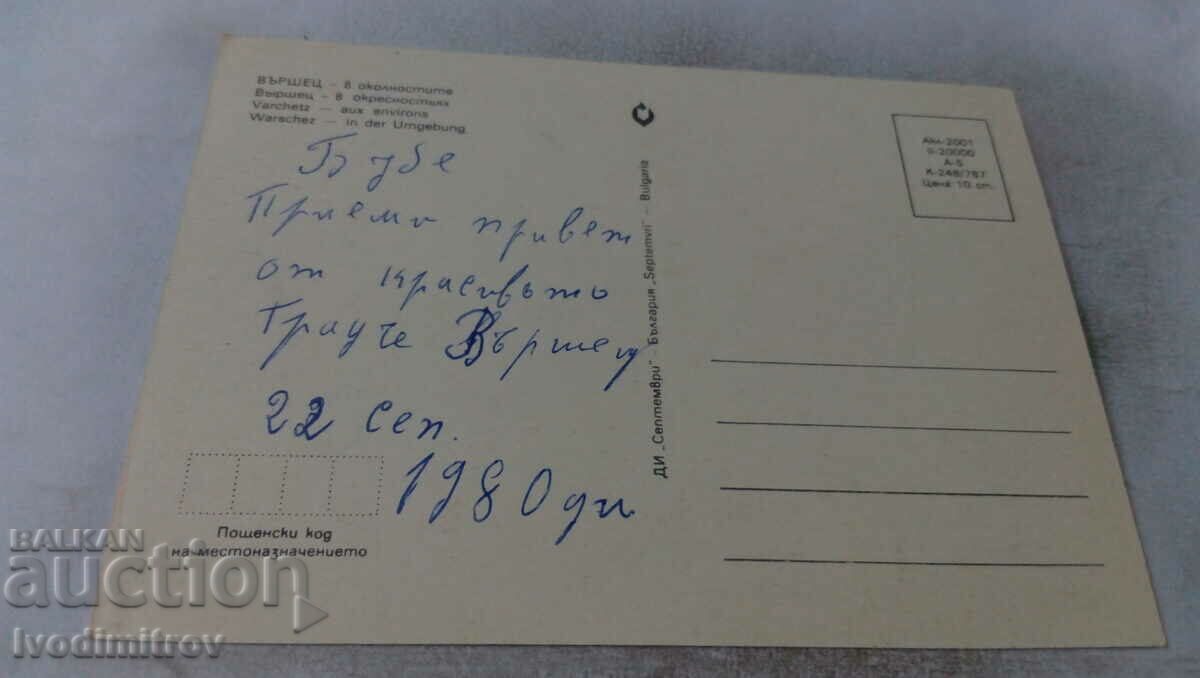 ВЪРШЕЦ – В околностите
Вършец – В окресностьях
Varchetz — aux environs
Warschez — in der Umgebung
Бубе
Приеми привет
от красивъто
Граче Вършец
22 Сеп.
1980 ди
Пощенски код
на местоназначението
ДИ „Септември" – България „Septemvri" – Bulgaria
Акл-2001
II-20000
А-5
К-248/787
Цена 10 ст.
BALKAN
auction
Ivodimitrov